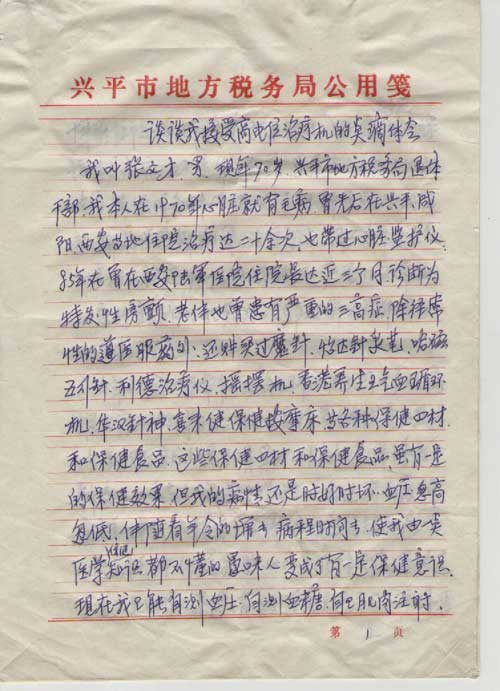 兴平市地方税务局公用笺
谈谈我接受高电位治疗机的点滴体会
我叫张文才,男,现年70岁,兴平市地方税务局退休
干部,我本人在1970年心脏就有毛病曾先后在兴平,咸
阳,西安当地住院治疗达二十余次,也带过心脏监护仪,
85年在曾在西安陆军医院住院长达近三个月诊断为
特发性房颤,老伴也曾患有严重的三高症,除经常
性的遵医服药外,还购买过磨针,哈达针灸笔,哈磁
五行针,利德治疗仪,摇摆机,香港养生五气血循环
机,华汉针神,喜来健保健按摩床,等各种保健四材,
和保健食品,这些保健四材和保健食品,虽有一定
的保健效果,但我的病情,还是时好时坏,血压忽高
忽低,伴随着年令的增长,病程时间长,使我由
医学知识都不懂的愚昧人变成了有一定保健意识.
现在我已能自测血压,自测血糖,自己肌肉注射.
第 1 页